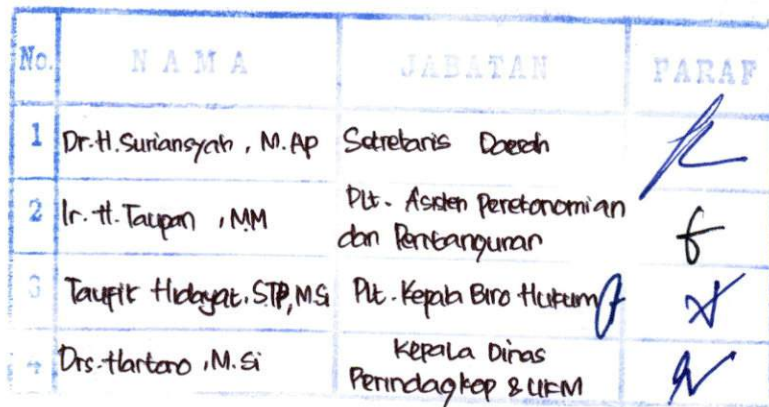 No. NAMA JABATAN PARAF
1 Dr. H. Suriansyah, M.Ap Sekretaris Daerah
2 Ir. H. Taupan, MM Plt. Asisten Perekonomian
dan Pembangunan
3 Taufik Hidayat, STP, M.Si Plt. Kepala Biro Hukum
4 Drs. Hartono, M.Si Kepala Dinas
Perindagkop & UKM